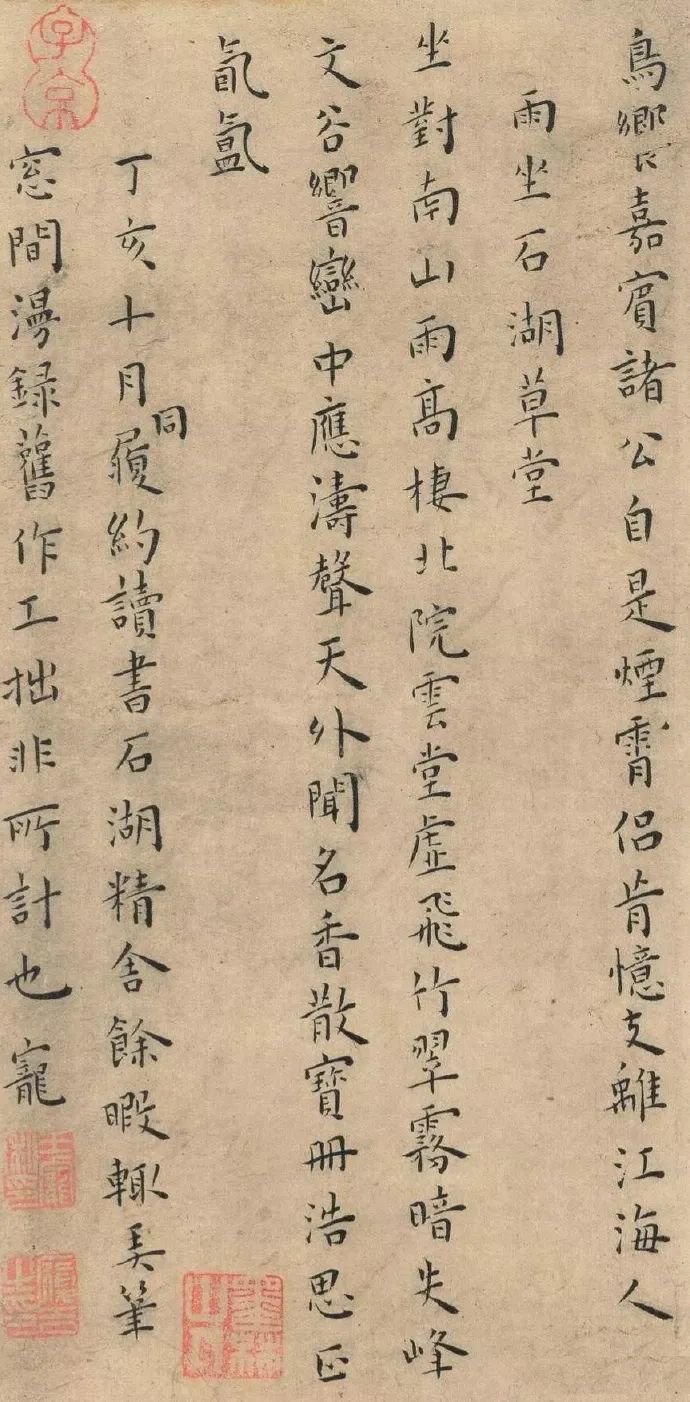 鳥嚮嘉賓諸公自是煙霄侣肯憶支離江海人
雨坐石湖草堂
坐對南山雨高棲北院雲堂虛飛竹翠霧暗失峰
文谷響巒中應濤聲天外聞名香散寶冊浩思正
氤氳
丁亥十月同履約讀書石湖精舍餘暇輒弄筆
窓間漫録舊作工拙非所計也寵
子京